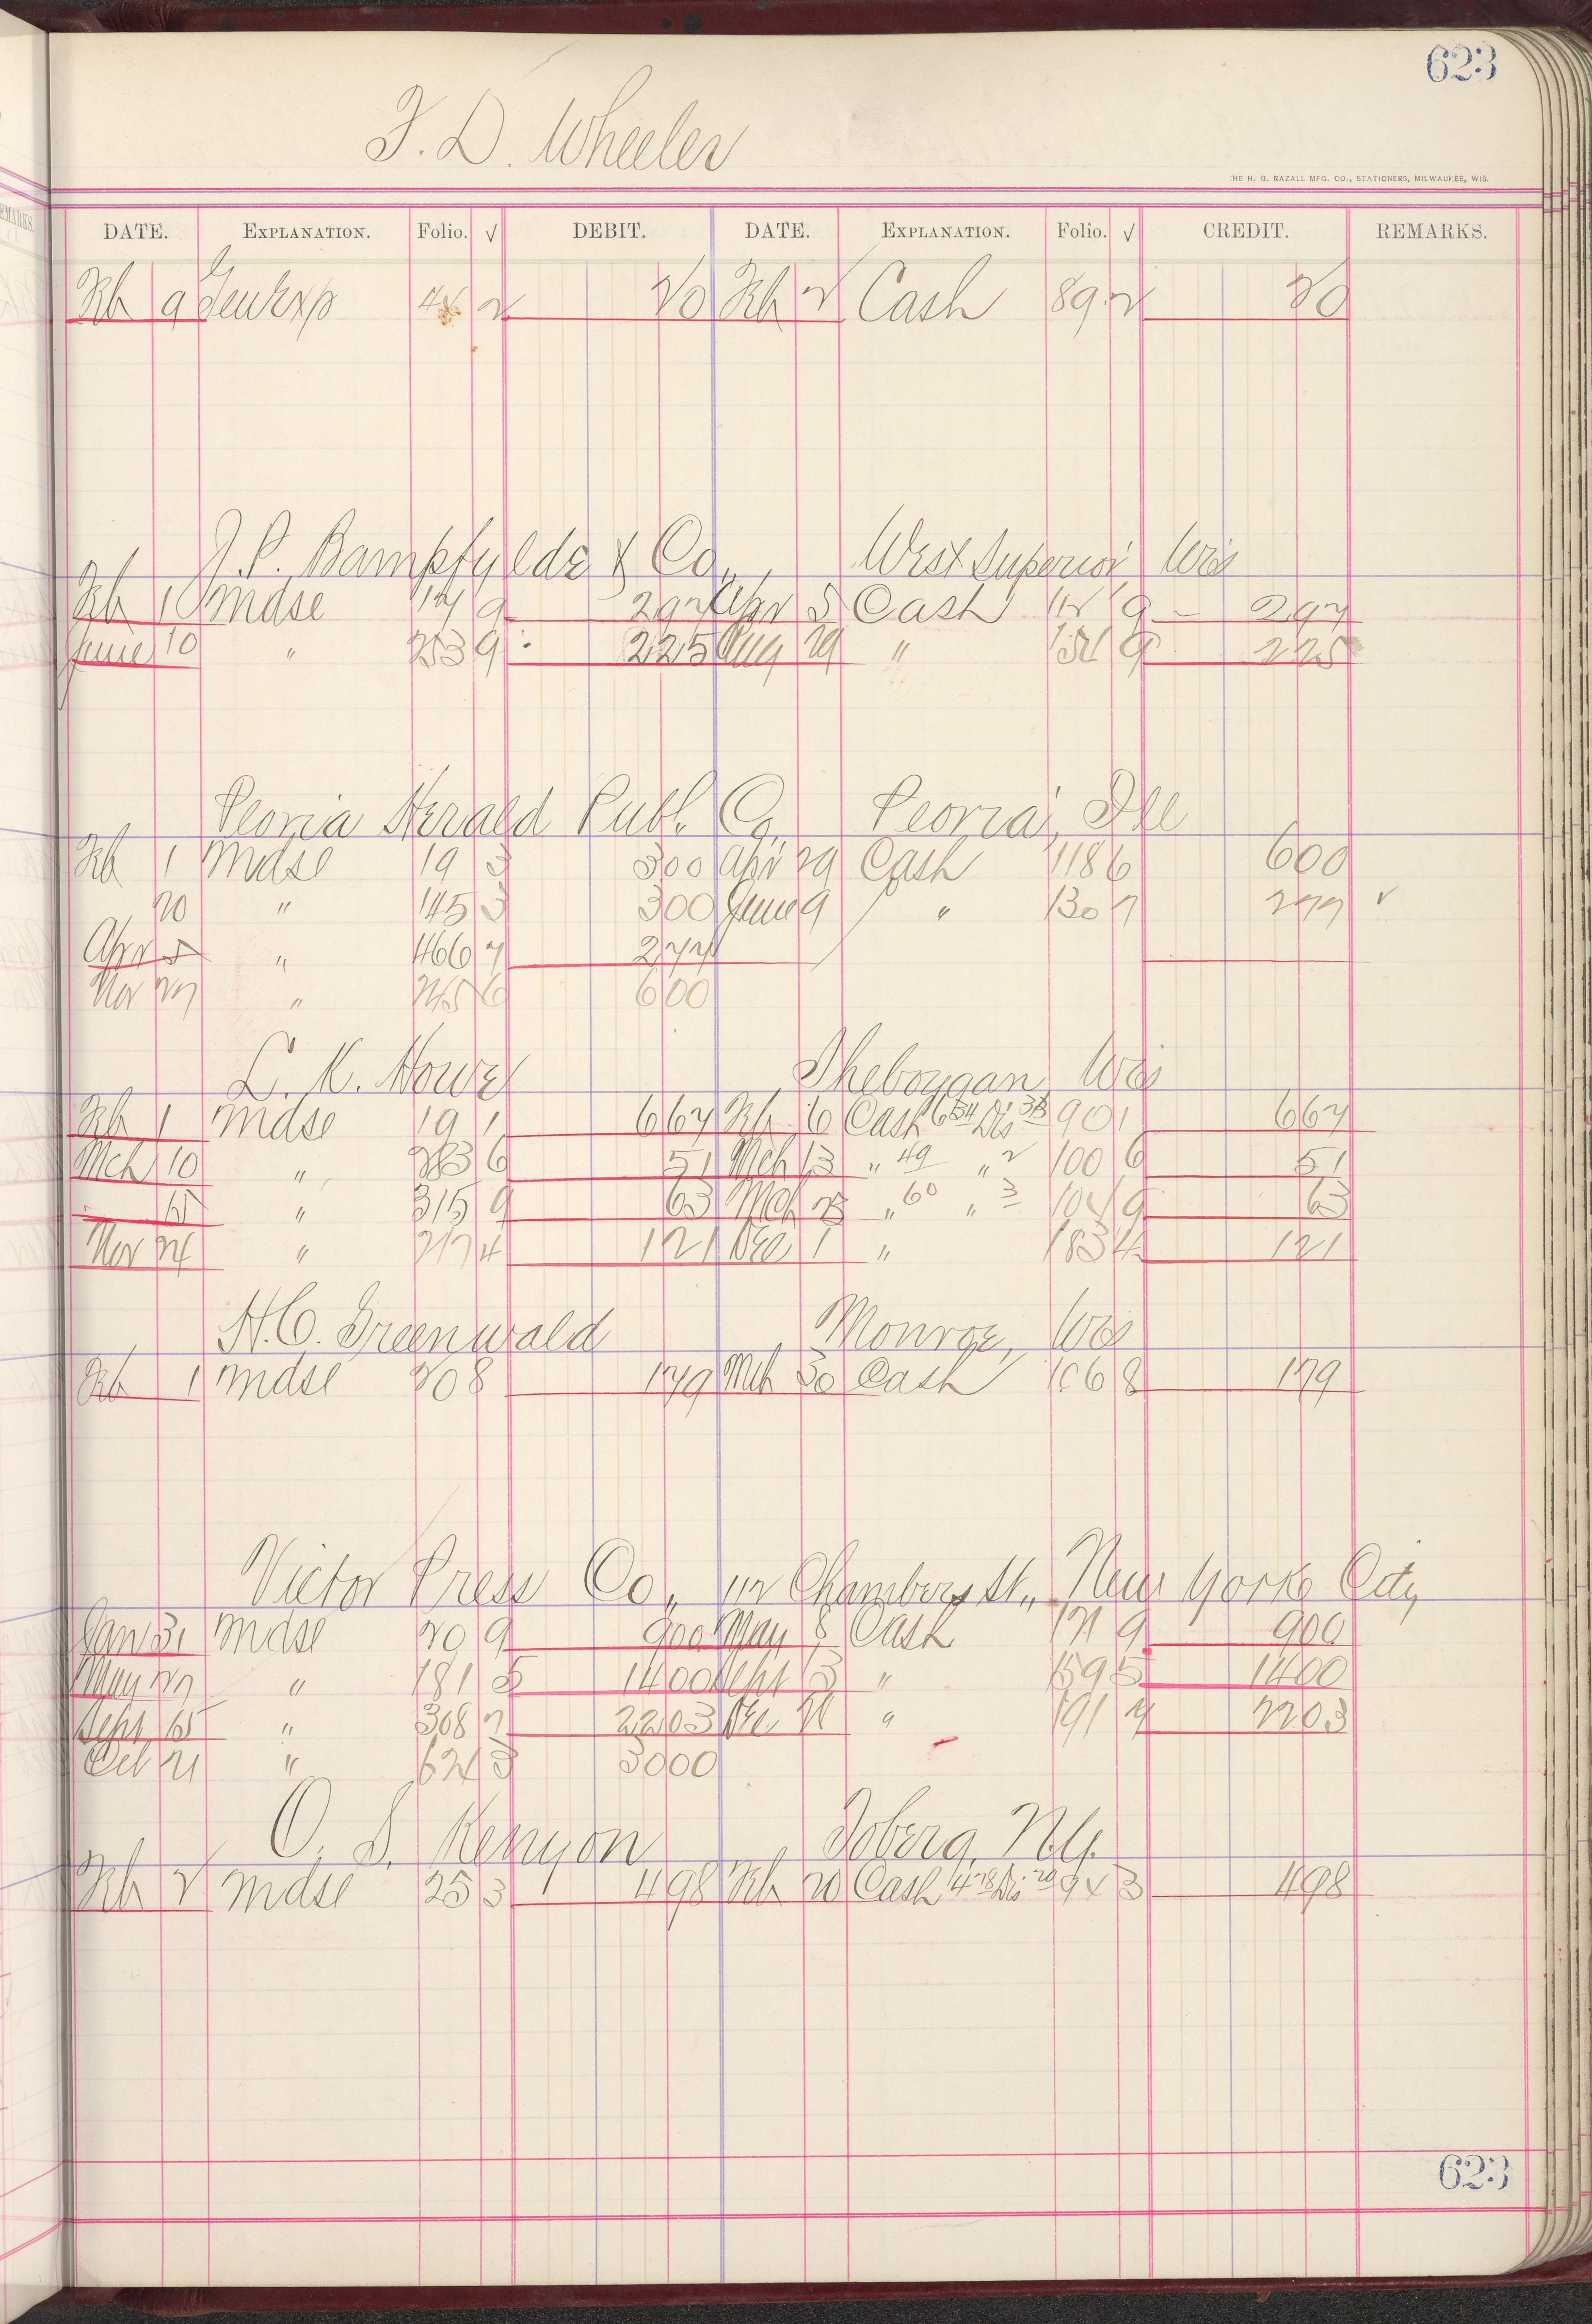 623
F. D. Wheeler
THE H. G. RAZALL MFG. CO., STATIONERS, MILWAUKEE, WIS.
DATE. EXPLANATION. Folio. √ DEBIT. DATE. EXPLANATION. Folio. √ CREDIT. REMARKS.
Feb 9 Gen Exp 2 20 Feb 2 Cash 89 2 20
J. P. Bampfylde & Co., West Superior Wis
Feb 1 Mdse 17 9 297 Apr 5 Cash 112 9 297
June 10 " 253 9 225 Aug 29 " 9 225
Peoria Herald Publ. Co. Peoria, Ill
Feb 1 Mdse 19 3 300 Apr 29 Cash 118 6 600
20 " 145 3 300 June 9 " 130 7 277 ✓
Apr 5 " 466 7 277
Nov 27 " 245 6 600
L. K. Howe Sheboygan Wis
Feb 1 Mdse 19 1 667 Feb 6 Cash 634 Dis 33 90 1 667
Mch 10 " 283 6 51 Mch 13 " 49 " 2 100 6 51
15 " 315 9 63 Mch 23 " 60 " 3 104 9 63
Nov 24 " 217 4 121 Dec 1 " 183 4 121
H. C. Greenwald Monroe, Wis
Feb 1 Mdse 20 8 179 Mch 30 Cash 106 8 179
Victor Press Co., 112 Chambers St., New York City
Jan 31 Mdse 20 9 900 May 8 Cash 121 9 900
May 27 " 181 5 1400 Sept 13 " 159 5 1400
Sept 15 " 308 7 2203 Dec 21 " 191 7 2203
Oct 21 " 624 3 3000
O. S. Kenyon N.Y.
Feb 2 Mdse 25 3 498 Feb 20 Cash 478 Dis 20 94 3 498
623